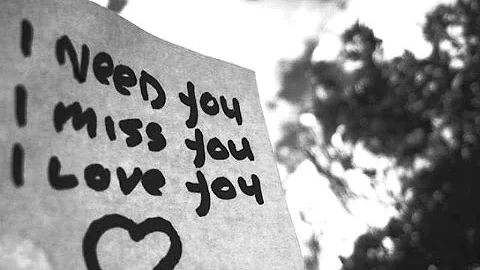 I NEED you
I MISS you
I LOVE you